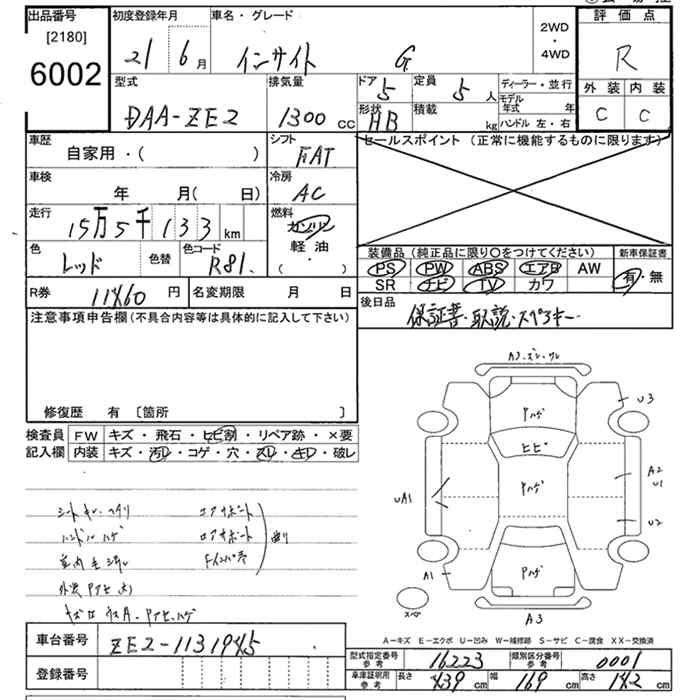 出品番号
[2180]
6002
初度登録年月
21 6 月
車名・グレード
インサイト G
2WD
・
4WD
評価点
R
外装 内装
C C
型式
DAA-ZE2
排気量
1300 CC
ドア
5
定員
5 人
ディーラー・並行
モデル年式 年
形状
HB
積載
kg
ハンドル 左・右
車歴
自家用・( )
シフト
FAT
セールスポイント (正常に機能するものに限ります)
車検
年 月( 日)
冷房
AC
走行
15万5千133 km
燃料
ガソリン
軽油
( ・ )
色
レッド
色替
色コード
R81.
装備品 (純正品に限り○をつけてください)
新車保証書
PS PW ABS エアB AW
SR ナビ TV カワ
有・無
R券
11460 円
名変期限 月 日
後日品
保証書・取説・スペアキー
注意事項申告欄(不具合内容等は具体的に記入して下さい)
修復歴 有 [箇所 ]
検査員
記入欄
FW キズ・飛石・ヒビ割・リペア跡・×要
内装 キズ・汚レ・コゲ・穴・スレ・キレ・破レ
エアサポート
ハンドルハゲ
ロアサポート
曲り
U3
アハゲ
ヒビ
アハゲ
UA1
A2
U1
U2
アハゲ
A1
スペア
A3
A-キズ E-エクボ U-凹み W-補修跡 S-サビ C-腐食 XX-交換済
車台番号
ZE2-1131945
登録番号
型式指定番号
参考
16223
類別区分番号
参考
0001
車庫証明用
参考
長さ
439 cm
幅
169 cm
高さ
142 cm